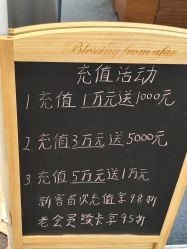 Blessing from afar
充值活动
1 充值 1万元送1000元
2. 充值 3万元送5000元
3. 充值 5万元送1万元
新客首次充值享98折
老会员续卡享95折